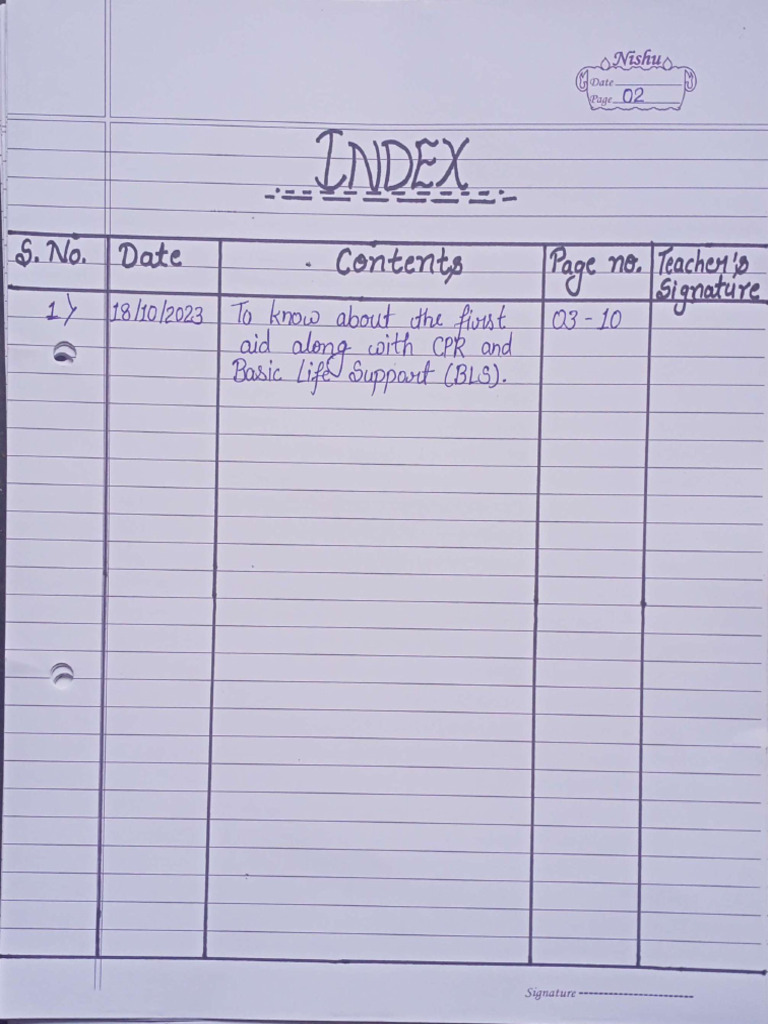 Nishu
Date
Page 02
INDEX
S. No. Date Contents Page no. Teacher's
Signature
1) 18/10/2023 To know about the first 03-10
aid along with CPR and
Basic Life Support (BLS).
Signature